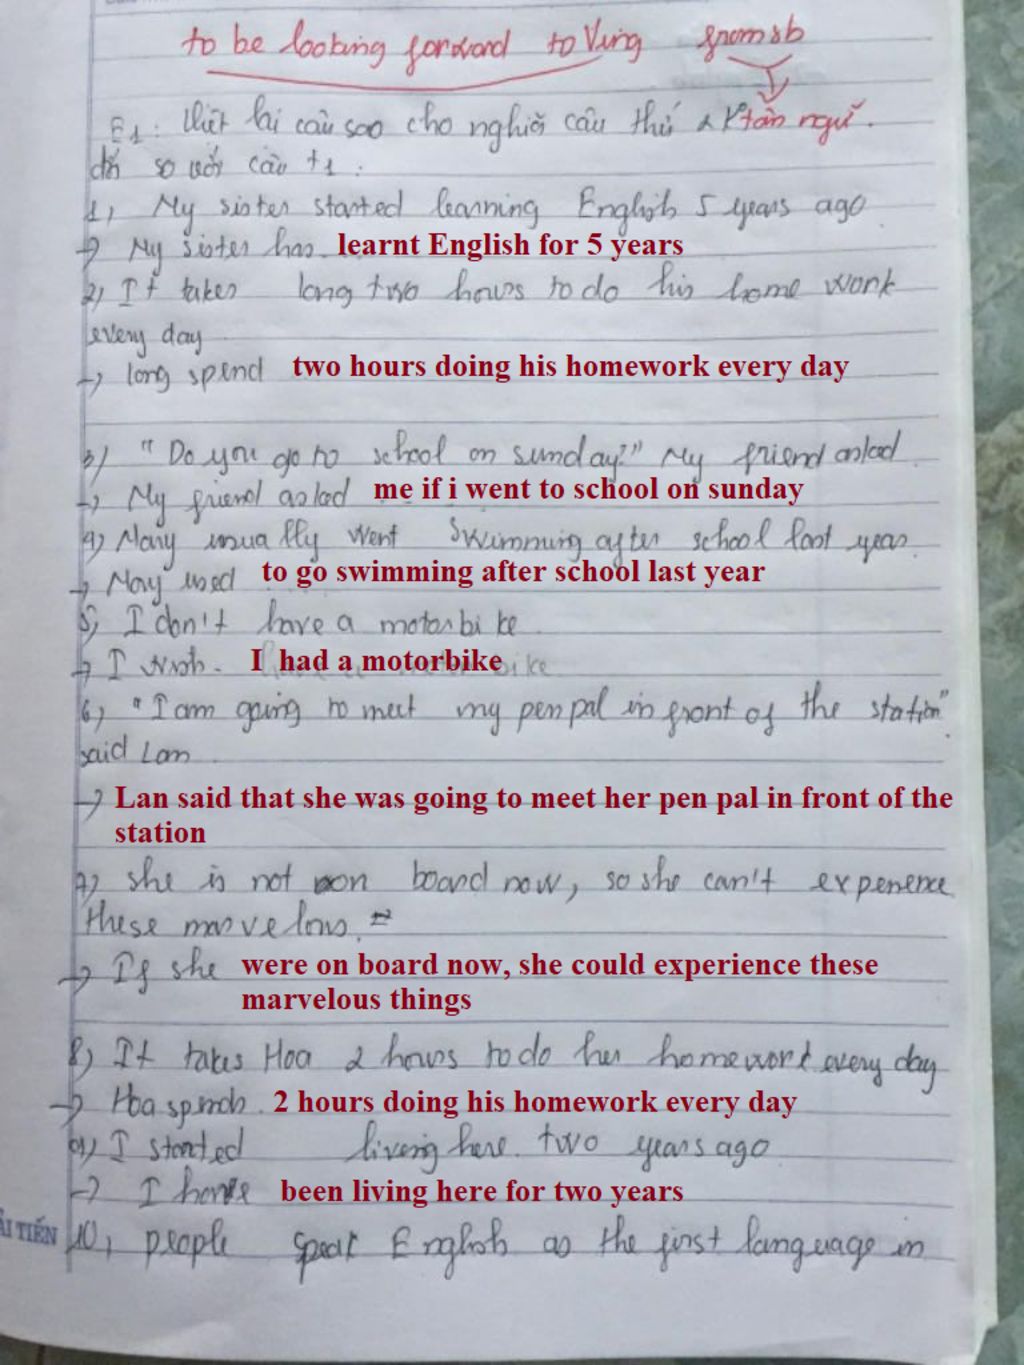 to be looking forward to Ving from sb
E1: Viết lại câu sao cho nghiã câu thứ 2 K tân ngữ.
đổi so với câu t1:
1, My sister started learning English 5 years ago
→ My sister has learnt English for 5 years
2, It takes long two hours to do his home work
every day
→ long spend two hours doing his homework every day
3) "Do you go to school on sunday?" My friend asked
→ My friend asked me if i went to school on sunday
4) Mary usually went swimming after school last year.
→ Mary used to go swimming after school last year
5, I don't have a motorbike
→ I wish I had a motorbike
6, "I am going to meet my pen pal in front of the station"
said Lan
→ Lan said that she was going to meet her pen pal in front of the
station
7) she is not on board now, so she can't experience
these marvelous.
→ If she were on board now, she could experience these
marvelous things
8) It takes Hoa 2 hours to do her homework every day
→ Hoa spends 2 hours doing his homework every day
9) I started living here. two years ago
→ I have been living here for two years
ẢI TIẾN 10, people speak English as the first language in